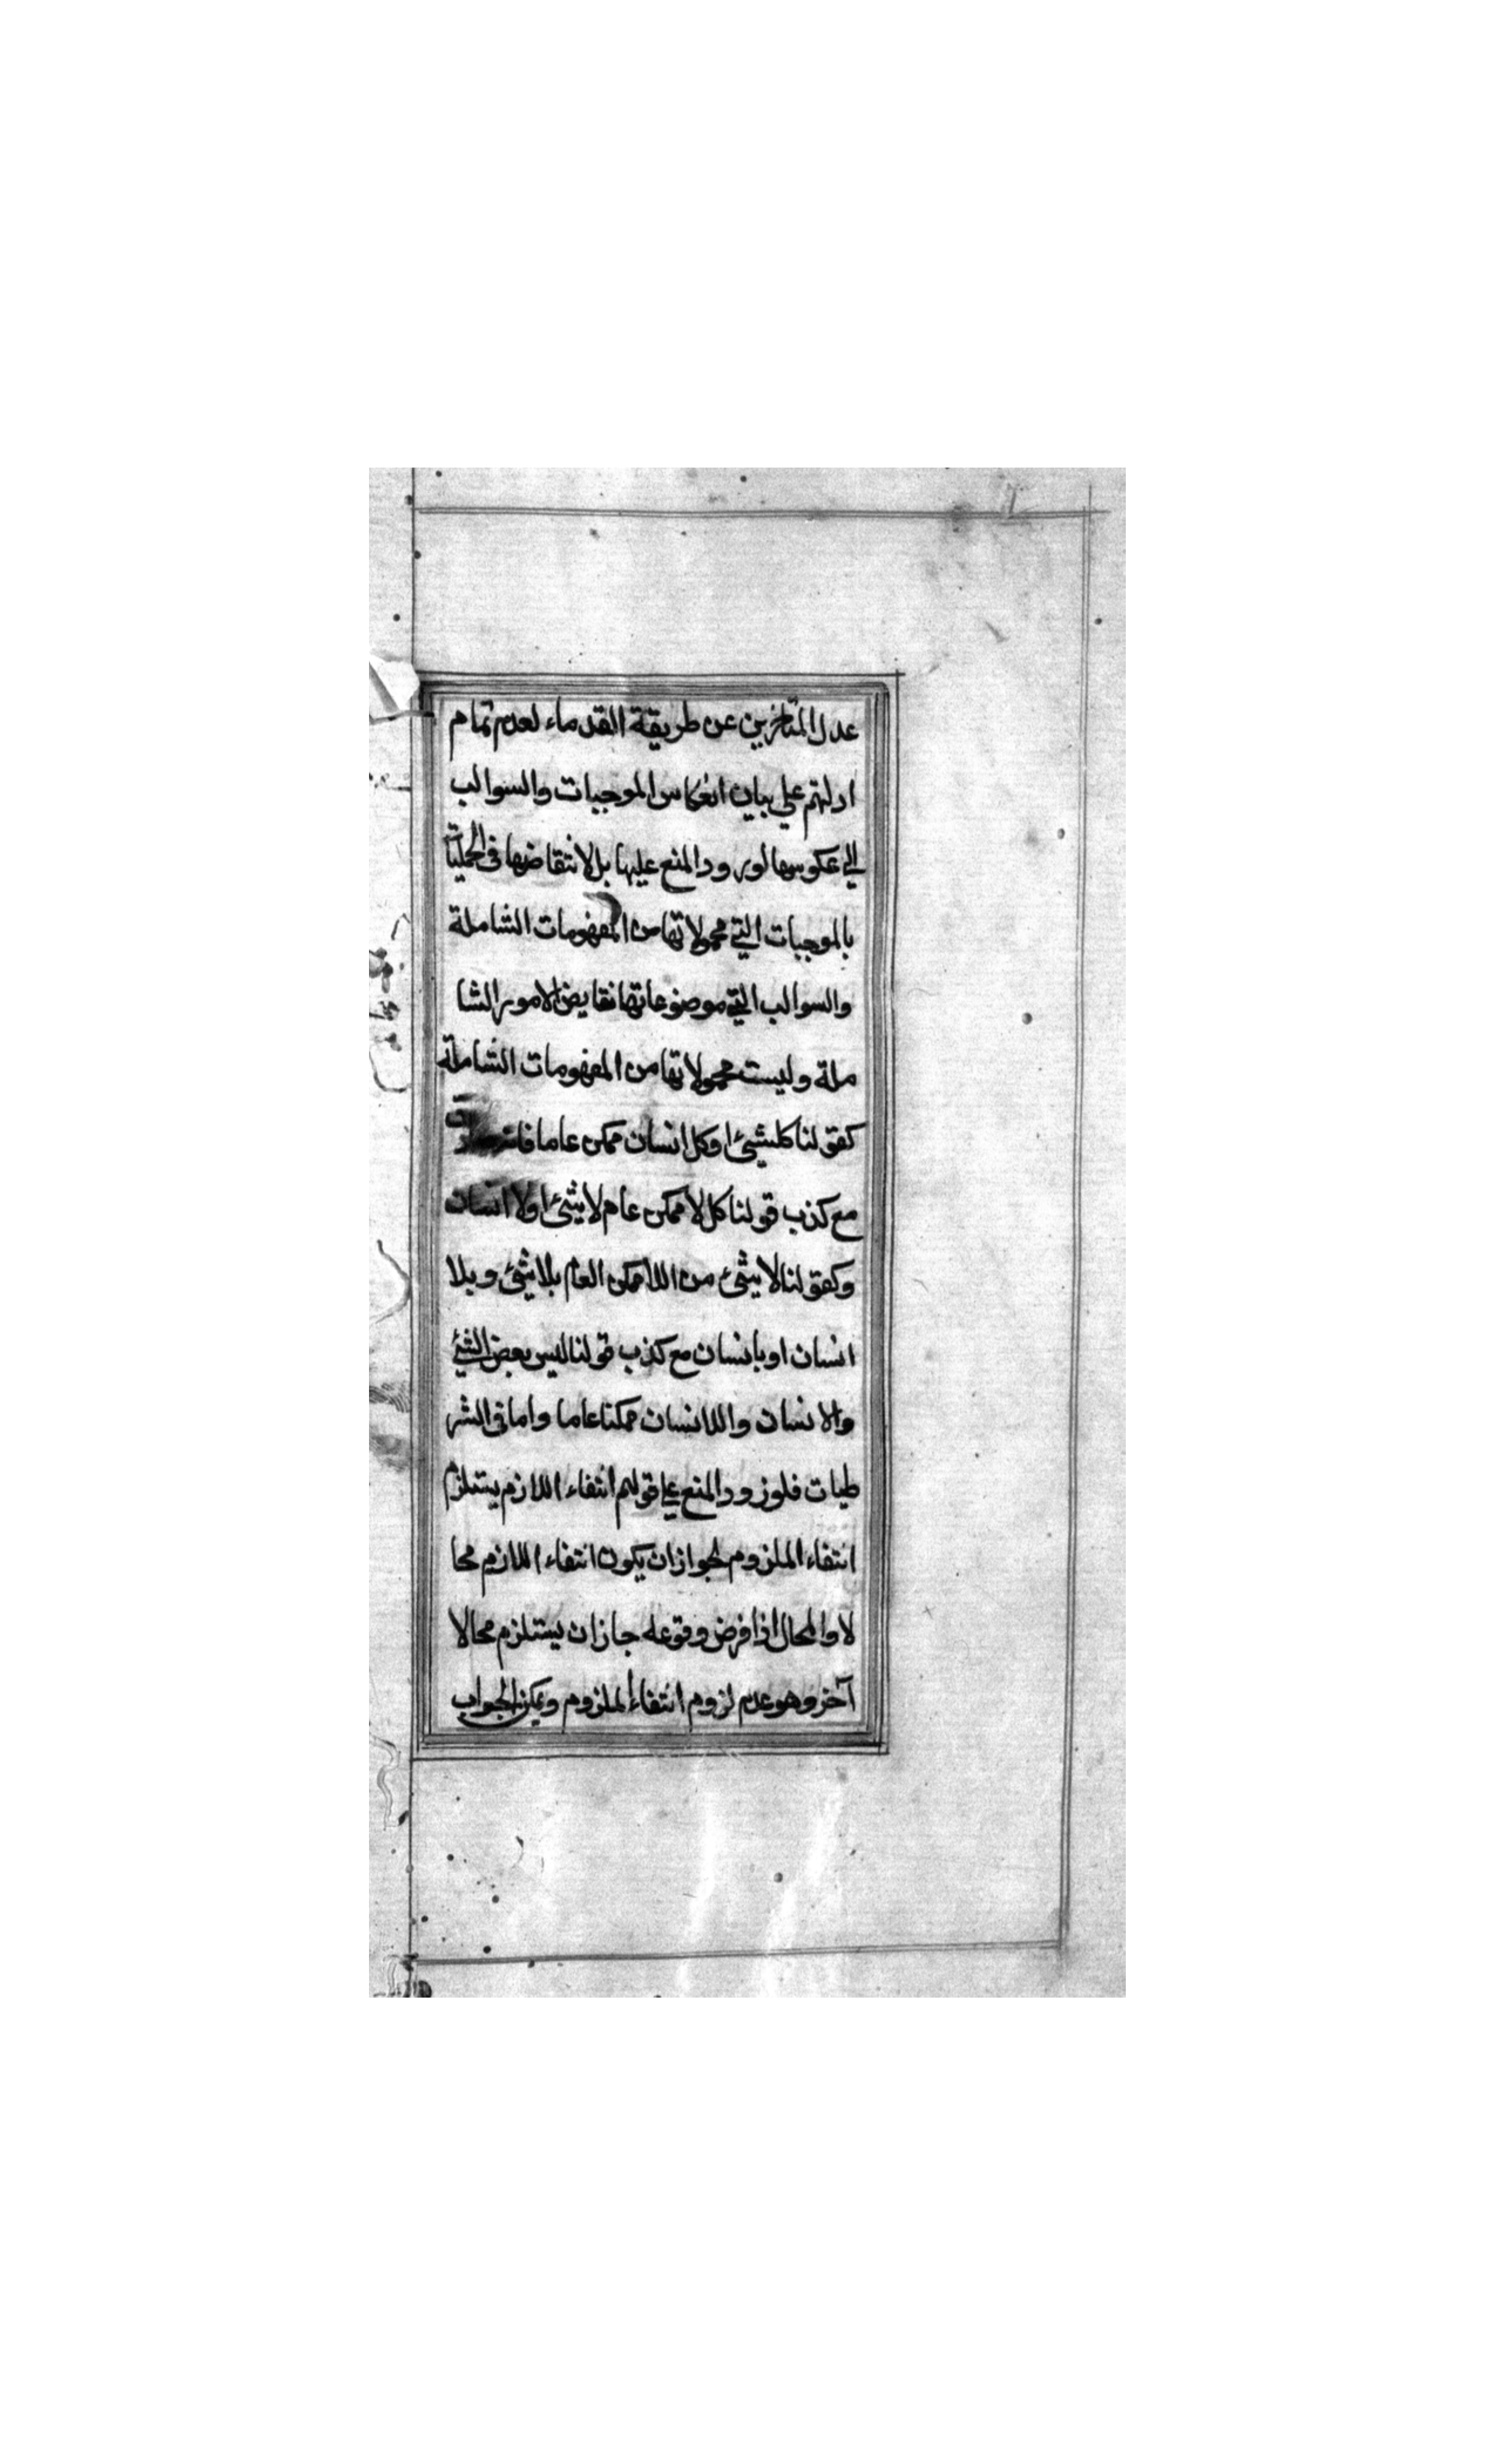 عدل المتاخرين عن طريقة القدماء لعدم تمام
ادلتهم علي بيان انعكاس الموجبات والسوالب
الي عكوسها لورود المنع عليها بل لانتقاضها في الحمليات
بالموجبات التي محمولاتها من المفهومات الشاملة
والسوالب التي موضوعاتها نقايض الامور الشا
ملة وليست محمولاتها من المفهومات الشاملة
كقولنا كلشيئ او كل انسان ممكن عاما فانه
مع كذب قولنا كل لا ممكن عام لا شيئ او لا انسان
وكقولنا لا شيئ من اللا ممكن العام بلا شيئ وبلا
انسان او بانسان مع كذب قولنا ليس بعض الشيئ
والانسان واللا انسان ممكنا عاما واما في الشر
طيات فلوزود المنع علي قولهم انتفاء اللازم يستلزم
انتفاء الملزوم لجواز ان يكون انتفاء اللازم محا
لا والمحال اذا فرض وقوعه جاز ان يستلزم محالا
آخر وهو عدم لزوم انتفاء الملزوم ويمكن الجواب